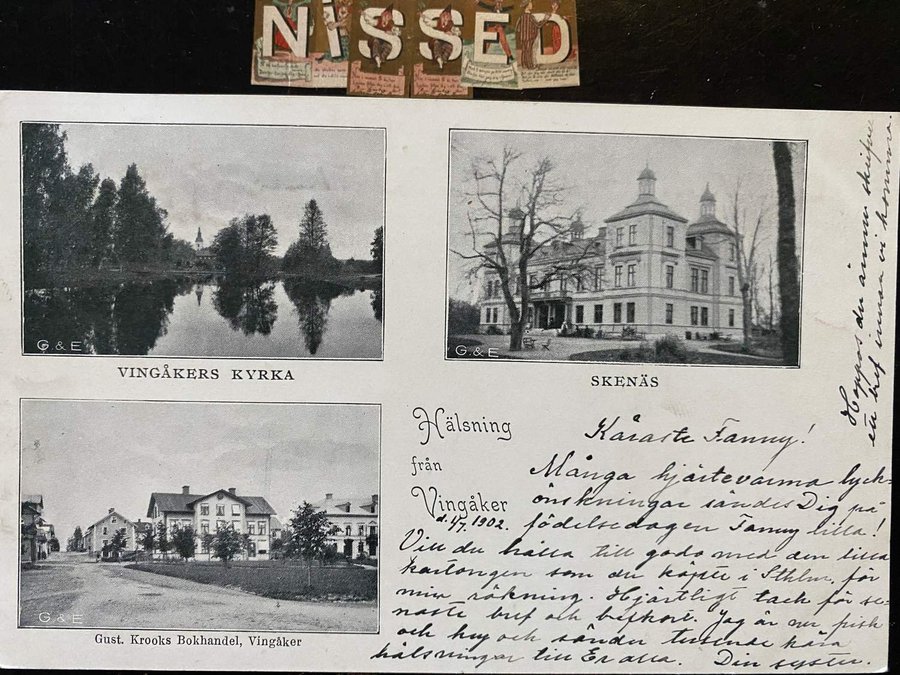 NISSED
G & E
VINGÅKERS KYRKA
G & E
SKENÄS
G & E
Gust. Krooks Bokhandel, Vingåker
Hälsning
från
Vingåker
d. 1/7 1902.
Käraste Fanny!
Många hjärtevarma lyck-
önskningar sändes Dig på
födelsedagen Fanny lilla!
Vill du hålla till godo med den lilla
kartongen som du köpte i Sthlm, för
min räkning. Hjärtligt tack för se-
naste bref och brefkort. Jag är nu frisk
och kry och sänder tusende kära
hälsningar till Er alla. Din syster.
Hoppas du ännu skrifver
ett bref innan vi komma.